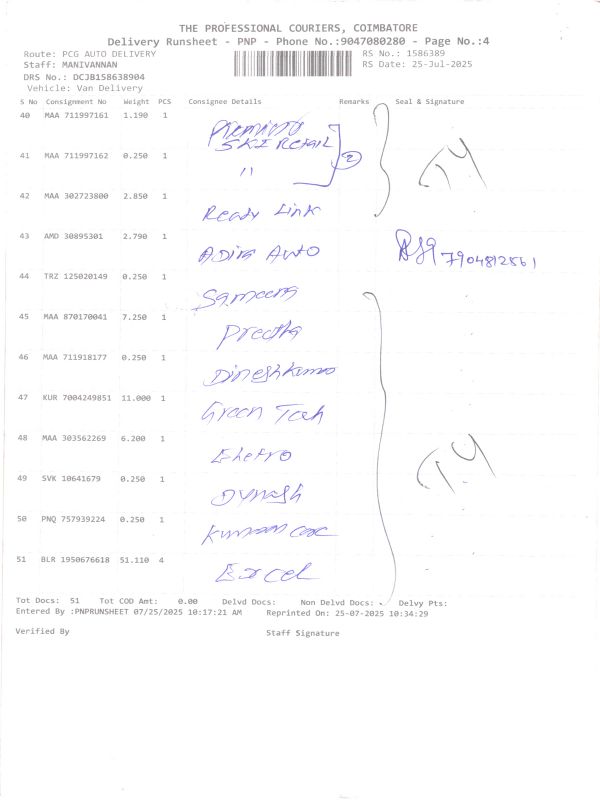 THE PROFESSIONAL COURIERS, COIMBATORE
Delivery Runsheet - PNP - Phone No.:9047080280 - Page No.:4
Route: PCG AUTO DELIVERY RS No.: 1586389
Staff: MANIVANNAN RS Date: 25-Jul-2025
DRS No.: DCJB158638904
Vehicle: Van Delivery
S No Consignment No Weight PCS Consignee Details Remarks Seal & Signature
40 MAA 711997161 1.190 1
SKI RETAIL
41 MAA 711997162 0.250 1 (2)
"
42 MAA 302723800 2.850 1
Ready Link
43 AMD 30895301 2.790 1
Adira Auto 7904812561
44 TRZ 125020149 0.250 1
Sameera
45 MAA 870170041 7.250 1
Preetha
46 MAA 711918177 0.250 1
Dineshkumar
47 KUR 7004249851 11.000 1
Green Tech
48 MAA 303562269 6.200 1
49 SVK 10641679 0.250 1
50 PNQ 757939224 0.250 1
51 BLR 1950676618 51.110 4
Excel
Tot Docs: 51 Tot COD Amt: 0.00 Delvd Docs: Non Delvd Docs: Delvy Pts:
Entered By :PNPRUNSHEET 07/25/2025 10:17:21 AM Reprinted On: 25-07-2025 10:34:29
Verified By Staff Signature